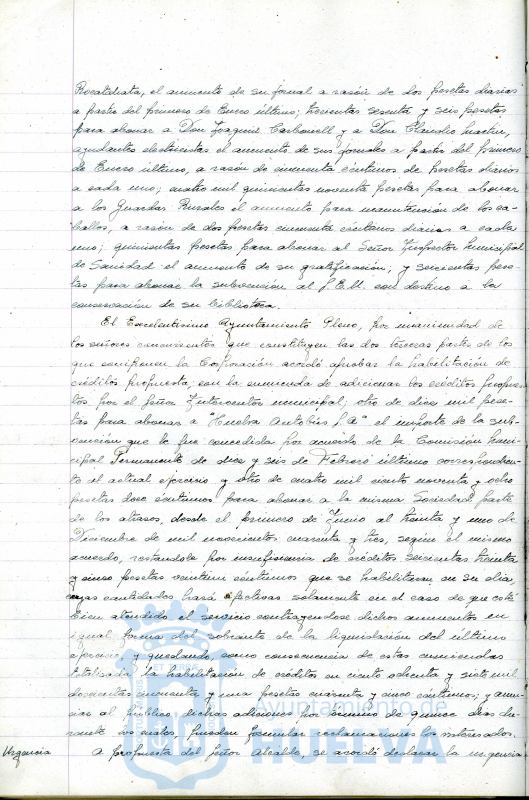 Rocatallata, el aumento de su jornal a razón de dos pesetas diarias
a partir del primero de Enero último; trescientas sesenta y seis pesetas
para abonar a Don Joaquin Carbonell y a Don Claudio Martin,
ayudantes electricistas el aumento de sus jornales a partir del primero
de Enero último, a razón de cincuenta céntimos de pesetas diarios
a cada uno; cuatro mil quinientas noventa pesetas para abonar
a los Guardas Rurales el aumento para manutención de los ca-
ballos, a razón de dos pesetas cincuenta céntimos diarios a cada
uno; quinientas pesetas para abonar al Señor Inspector Municipal
de Sanidad el aumento de su gratificación; y seiscientas pese-
tas para abonar la subvención al S.E.U. con destino a la
conservación de su biblioteca.
El Excelentísimo Ayuntamiento Pleno, por unanimidad de
los señores concurrentes que constituyen las dos terceras partes de los
que componen la Corporación acordó aprobar la habilitación de
créditos propuesta, con la enmienda de adicionar los créditos propues-
tos por el Señor Interventor municipal, otro de diez mil pese-
tas para abonar a "Huelva Autobús S.A" el importe de la sub-
vención que le fue concedida por acuerdo de la Comisión Muni-
cipal Permanente de diez y seis de Febrero último correspondien-
te al actual ejercicio y otro de cuatro mil ciento noventa y ocho
pesetas doce céntimos para abonar a la misma Sociedad parte
de los atrasos, desde el primero de Junio al treinta y uno de
Diciembre de mil novecientos cuarenta y tres, según el mismo
acuerdo, restandole por insuficiencia de créditos seiscientas treinta
y cinco pesetas céntimos que se habilitaran en su dia,
cuyas cantidades hará efectivas solamente en el caso de que esté
bien atendido el servicio contrayendose dichos aumentos en
igual forma del sobrante de la liquidación del último
ejercicio y quedando, como consecuencia de estas enmiendas
totalizada la habilitación de créditos en ciento ochenta y siete mil
doscientas cincuenta y una pesetas cuarenta y cinco céntimos; y anun-
ciar al público dichas adiciones por término de quince días du-
rante los cuales, pueden formular reclamaciones los interesados.
Urgencia A propuesta del Señor Alcalde, se acordó declarar la urgencia
Ayuntamiento de
HUELVA